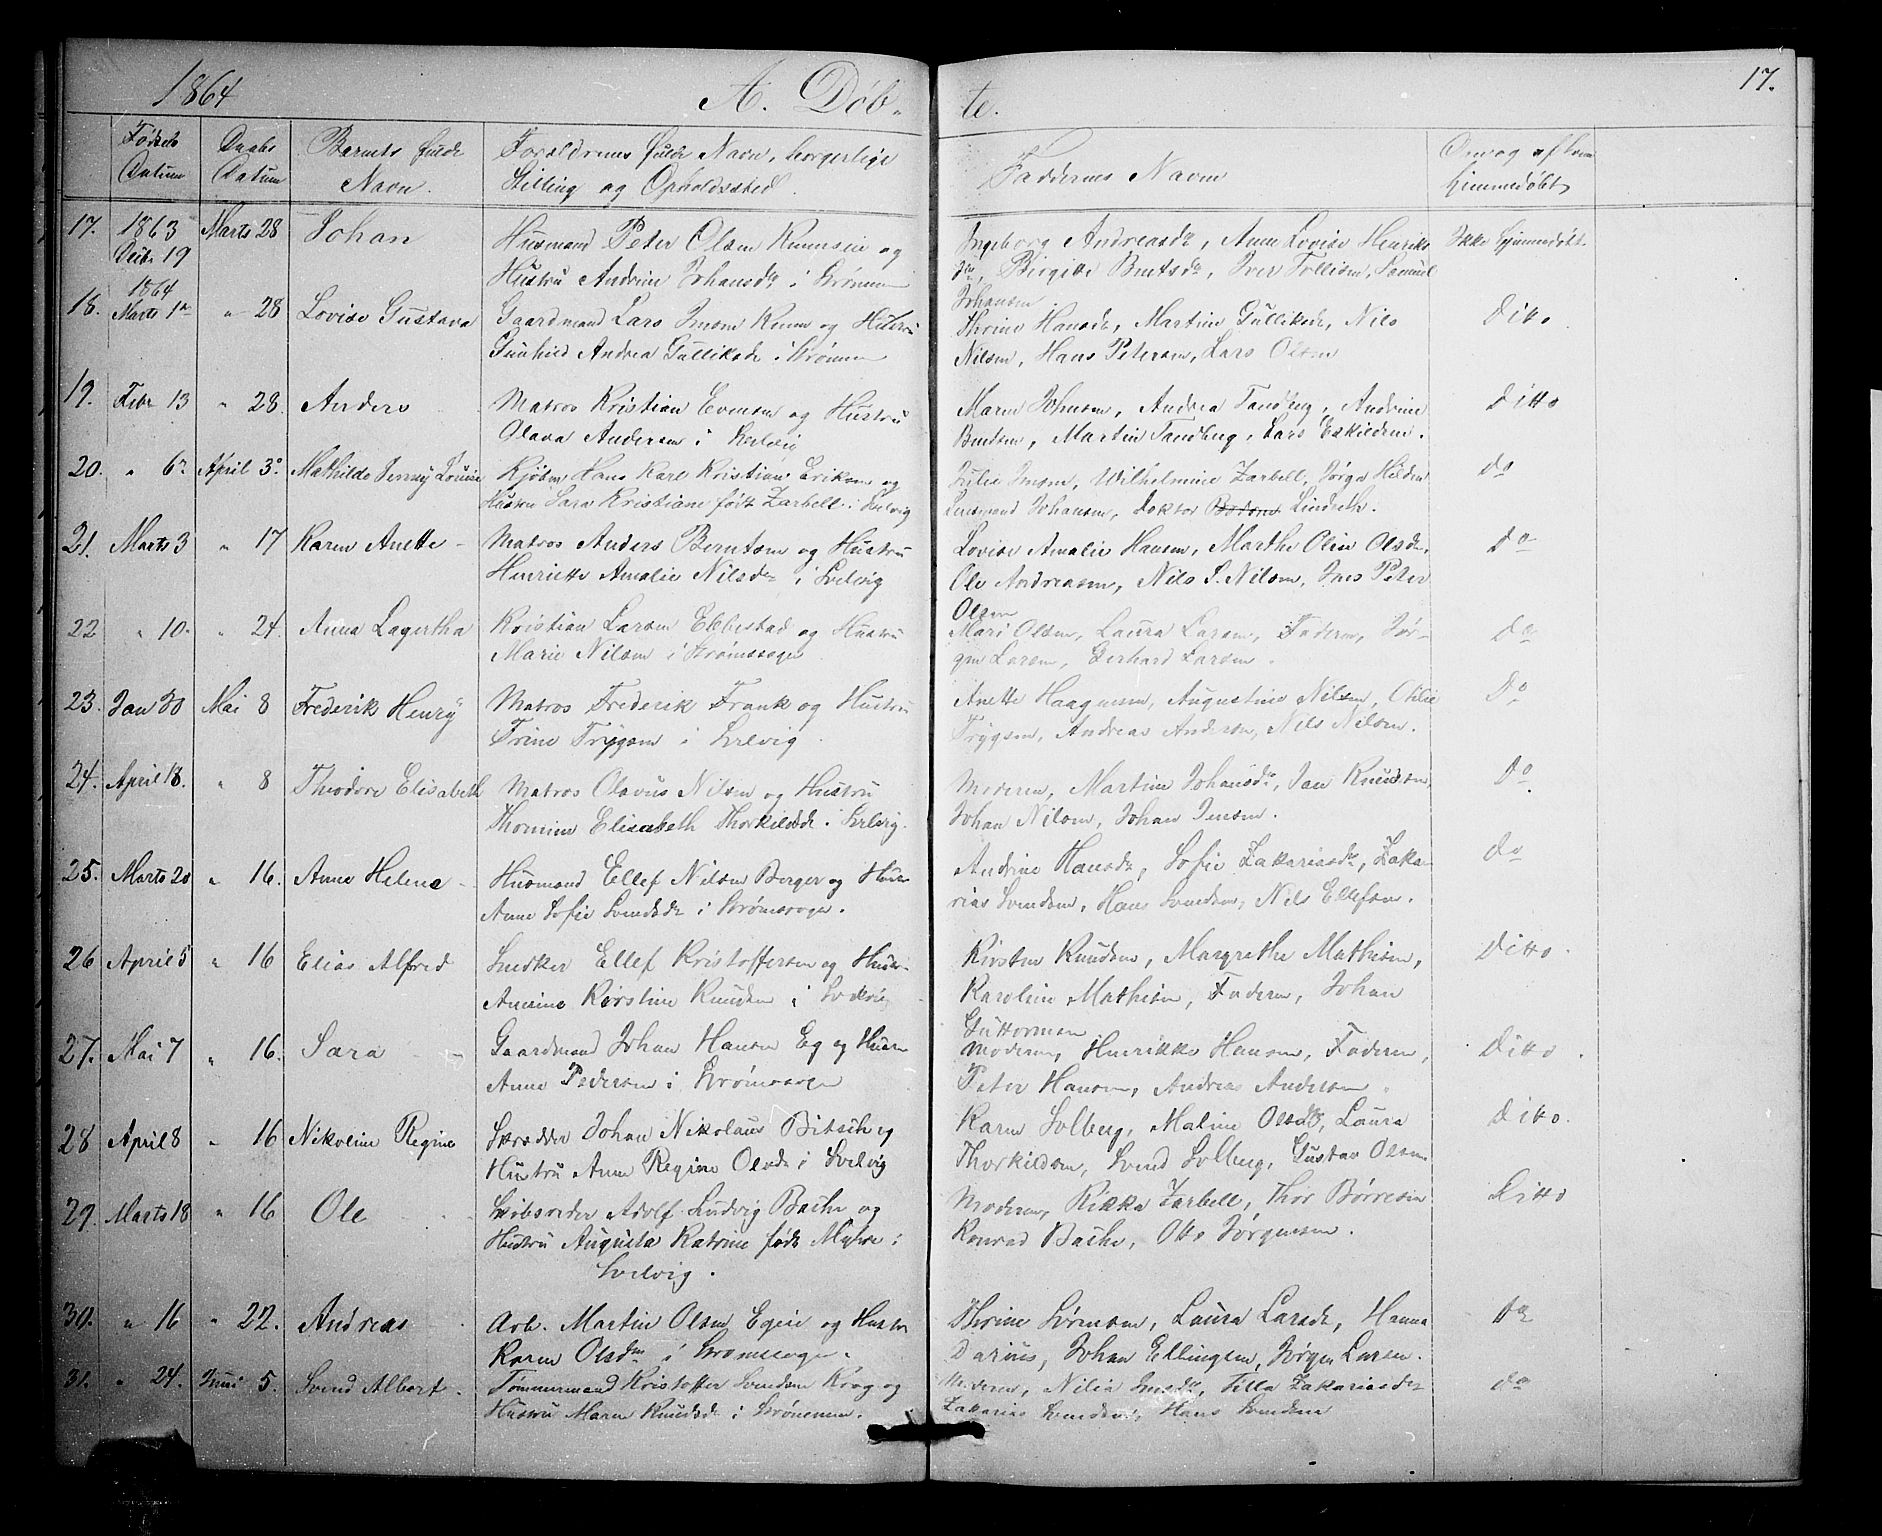 1864 A. Døb- te. 17.
Fødsels Datum Daabs Datum Barnets fulde Navn. Forældrenes fulde Navn, borgerlige Stilling og Opholdssted. Faddernes Navn Om og af hvem hjemmedøbt
17. 1863 Decbr 19 Marts 28 Johan
Husmand Peter Olsen og
Hustru Andrine Johansdr i Strømmen
Ingeborg Andreasdr, Anne Lovise Henriks
dr, Birgitte Berntsdr, Iver Tollefsen, Samuel
Johansen
Ikke hjemmedøbt.
18. 1864 Marts 1ste " 28 Lovise Gustava
Gaardmand Lars Jensen og Hustru
Gunhild Andrea Gulliksdr i Strømmen
Thrine Hansdr, Martine Gulliksdr, Nils
Nilsen, Hans Petersen, Lars Olsen
Ditto
19. Febr 13 " 28. Anders
Matros Kristian Evensen og Hustru
Olava Andersen i Svelvig
Maren Johnsen, Andrea Tandberg, Andrine
Berntsen, Martin Tandberg, Lars Eskildsen.
Ditto
20. " 6te April 3die Mathilde Jenny Louise
Kjøbm Hans Karl Kristian Eriksen og
Hustru Sara Kristiane født Zarbell i Svelvig
Julie Jensen, Wilhelmine Zarbell, Jørgen Hilden
Lensmand Johansen, Doktor Lindseth.
do
21. Marts 3 " 17 Karen Anette -
Matros Anders Berntsen og Hustru
Henriette Amalie Nilsdr i Svelvig
Lovise Amalie Hansen, Marthe Olin Olsdr,
Ole Andreasen, Nils S. Nilsen, Jens Peter
Olsen
Do
22 " 10. " 24. Anna Lagertha
Kristian Larsen Ebbestad og Hustru
Marie Nilsen i Strømssogn
Mari Olsen, Laura Larsen, Faderen, Jør-
gen Larsen, Gerhard Larsen.
Do
23. Jan 30 Mai 8 Frederik Henry
Matros Frederik Frank og Hustru
Trine Trygsen i Svelvig
Anette Haagensen, Augustine Nilsen, Otilie
Trygsen, Andreas Andersen, Nils Nilsen.
Do
24. April 18. " 8 Theodore Elisabeth
Matros Olavus Nilsen og Hustru
Thomine Elisabeth Thorkildsdr i Svelvig.
Moderen, Martine Johansdr, Jan Knudsen,
Johan Nilsen, Johan Jensen.
Do
25. Marts 20 " 16. Anne Helene -
Husmand Ellef Nilsen Berger og Hustru
Anne Sofie Svendsdr i Strømssogn.
Andrine Hansdr, Sofie Zakariasdr, Zaka-
rias Svendsen, Hans Svendsen, Nils Ellefsen.
do
26 April 5 " 16 Elias Alfred
Snedker Ellef Kristoffersen og Hustru
Amine Kirstine Knudsen i Svelvig
Kirsten Knudsen, Margrethe Mathisen,
Karoline Mathisen, Faderen, Johan
Guttormsen
Ditto.
27. Mai 7 " 16. Sara -
Gaardmand Johan Hansen Eg og Hustru
Anne Pedersen i Strømssogn
Moderen, Henrikke Hansen, Faderen,
Peter Hansen, Andreas Andersen.
Ditto.
28 April 8 " 16 Nikoline Regine
Skrædder Johan Nikolaus Bitsch og
Hustru Anne Regine Olsdr i Svelvig
Karen Solberg, Maline Olsdr, Laura
Thorkildsen, Svend Solberg, Gustav Olsen
Ditto.
29. Marts 18 " 16 Ole
Skibsreder Adolf Ludvig Bache og
Hustru Augusta Katrine født Myhre i
Svelvig.
Moderen, Rikka Zarbell, Thor Børresen
Konrad Bache, Otto Jørgensen.
Ditto
30. " 16 " 22. Andreas
Arb. Martin Olsen og Hustru
Karen Olsdr i Strømssogn.
Thrine Sørensen, Laura Larsdr, Hanna
Darius, Johan Ellingsen, Jørgen Larsen.
do
31. " 24. Juni 5. Svend Albert.
Tømmermand Kristoffer Svendsen Krog og
Hustru Maren Knudsdr i Strømmen.
Moderen, Nilia Jensdr, Tilla Zakariasdr
Zakarias Svendsen, Hans Svendsen
do